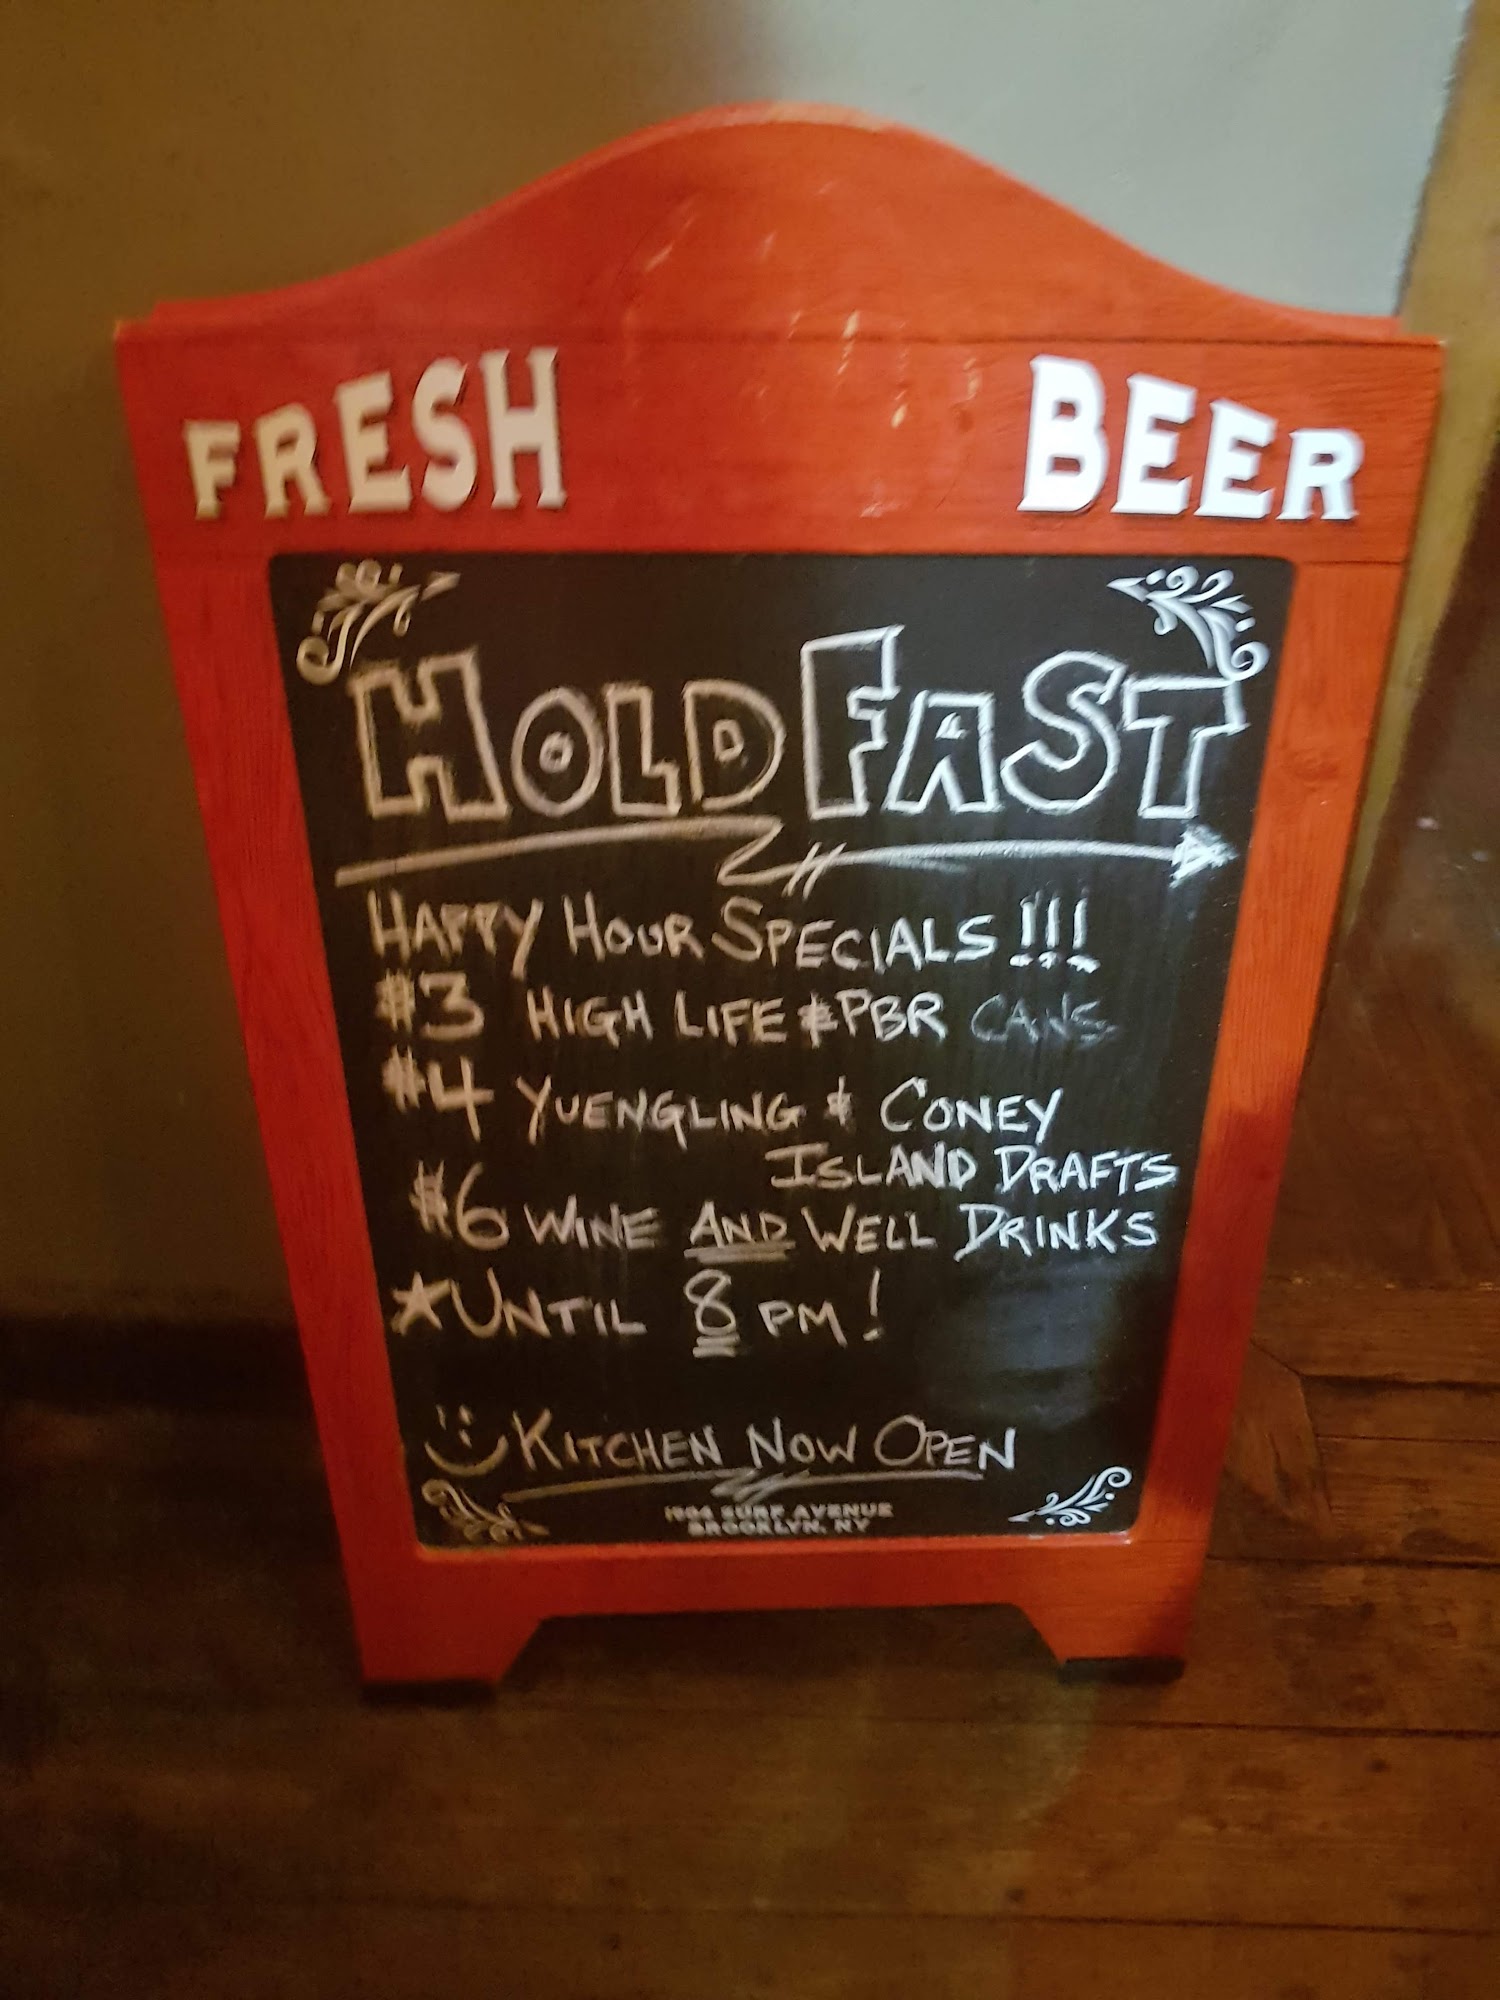 FRESH BEER
HOLD FAST
HAPPY HOUR SPECIALS !!!
#3 HIGH LIFE & PBR CANS
#4 YUENGLING & CONEY
ISLAND DRAFTS
#6 WINE AND WELL DRINKS
★UNTIL 8 PM!
KITCHEN NOW OPEN
SURF AVENUE
BROOKLYN, NY